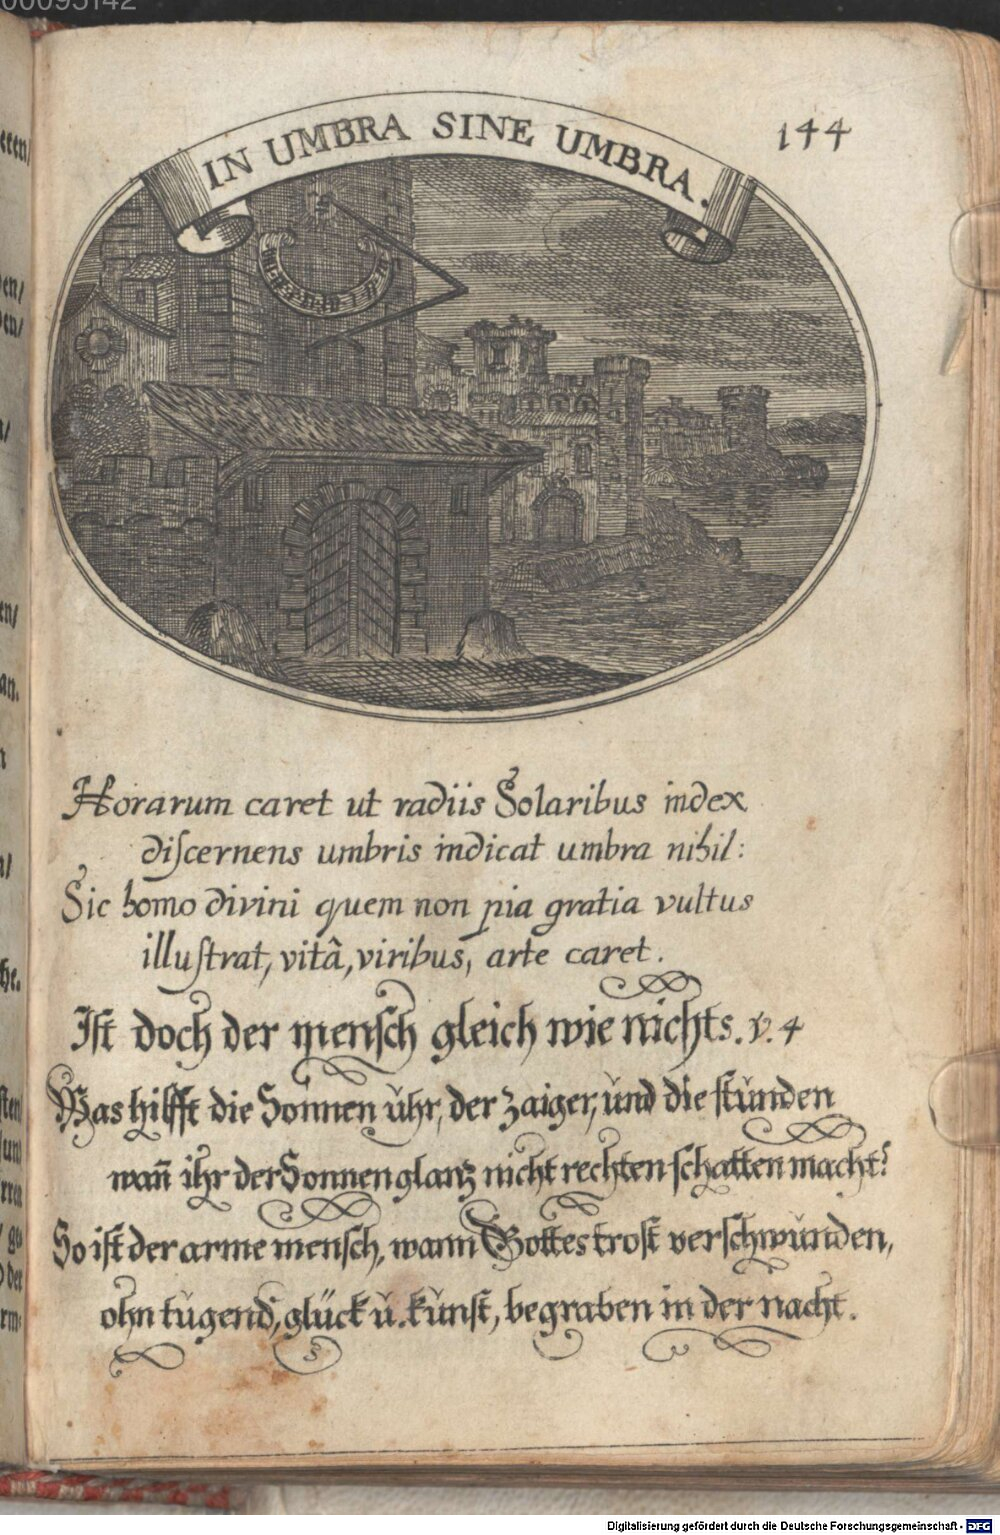 00095142
IN UMBRA SINE UMBRA.
144
Horarum caret ut radiis Solaribus index
discernens umbris indicat umbra nihil:
Sic homo divini quem non pia gratia vultus
illustrat, vitâ, viribus, arte caret.
Ist doch der mensch gleich wie nichts. v. 4
Was hilfft die Sonnen ŭhr, der zaiger, ŭnd die stŭnden
wan̄ ihr der Sonnen glanz nicht rechten schatten macht?
So ist der arme mensch, wann Gottes trost verschwŭnden,
ohn tŭgend, glück ŭ. kŭnst, begraben in der nacht.
Digitalisierung gefördert durch die Deutsche Forschungsgemeinschaft - DFG